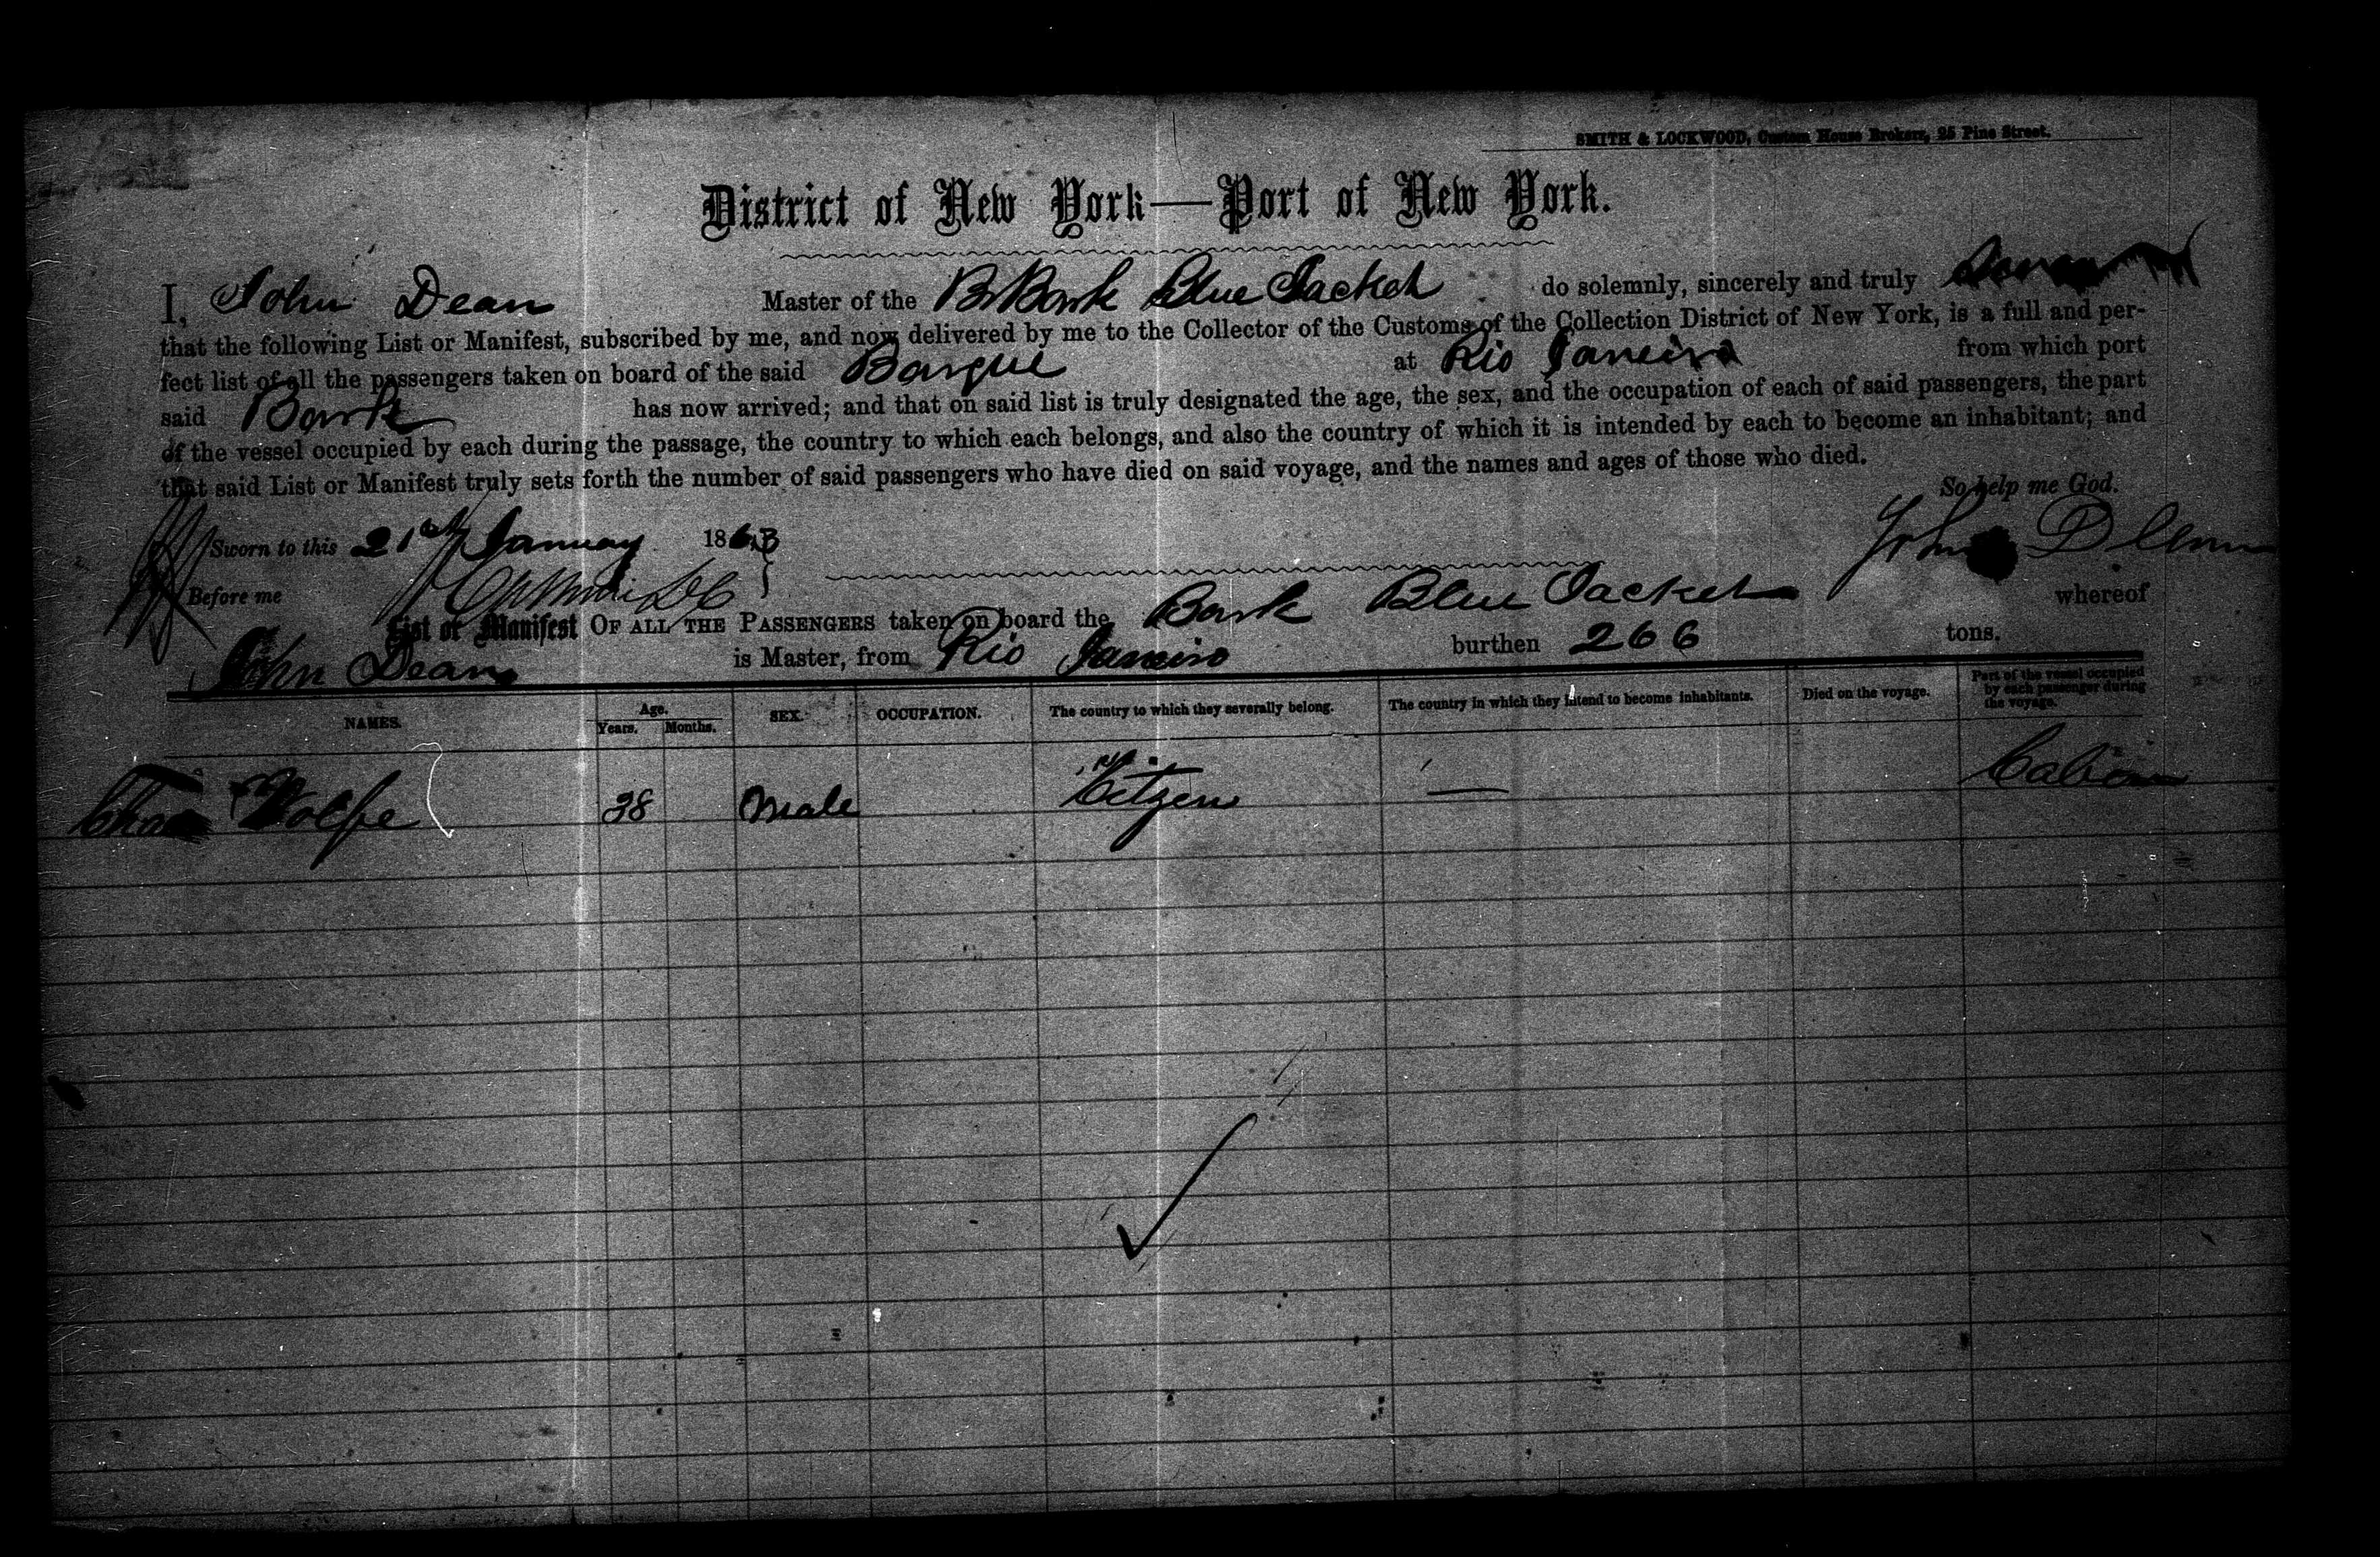 SMITH & LOCKWOOD, Custom House Brokers, 25 Pine Street.
District of New York—Port of New York.
I, John Dean Master of the Br Bark Blue Jacket do solemnly, sincerely and truly
that the following List or Manifest, subscribed by me, and now delivered by me to the Collector of the Customs of the Collection District of New York, is a full and per-
fect list of all the passengers taken on board of the said Barque at Rio Janeiro from which port
said Bark has now arrived; and that on said list is truly designated the age, the sex, and the occupation of each of said passengers, the part
of the vessel occupied by each during the passage, the country to which each belongs, and also the country of which it is intended by each to become an inhabitant; and
that said List or Manifest truly sets forth the number of said passengers who have died on said voyage, and the names and ages of those who died.
So help me God.
Sworn to this 21st January 1863
John Dean
Before me
List or Manifest OF ALL THE PASSENGERS taken on board the Bark Blue Jacket whereof
John Dean is Master, from Rio Janeiro burthen 266 tons.
NAMES. Age. Years. Months. SEX. OCCUPATION. The country to which they severally belong. The country in which they intend to become inhabitants. Died on the voyage. Part of the vessel occupied by each passenger during the voyage.
Chas Wolfe 38 Male Citzen — Cabin